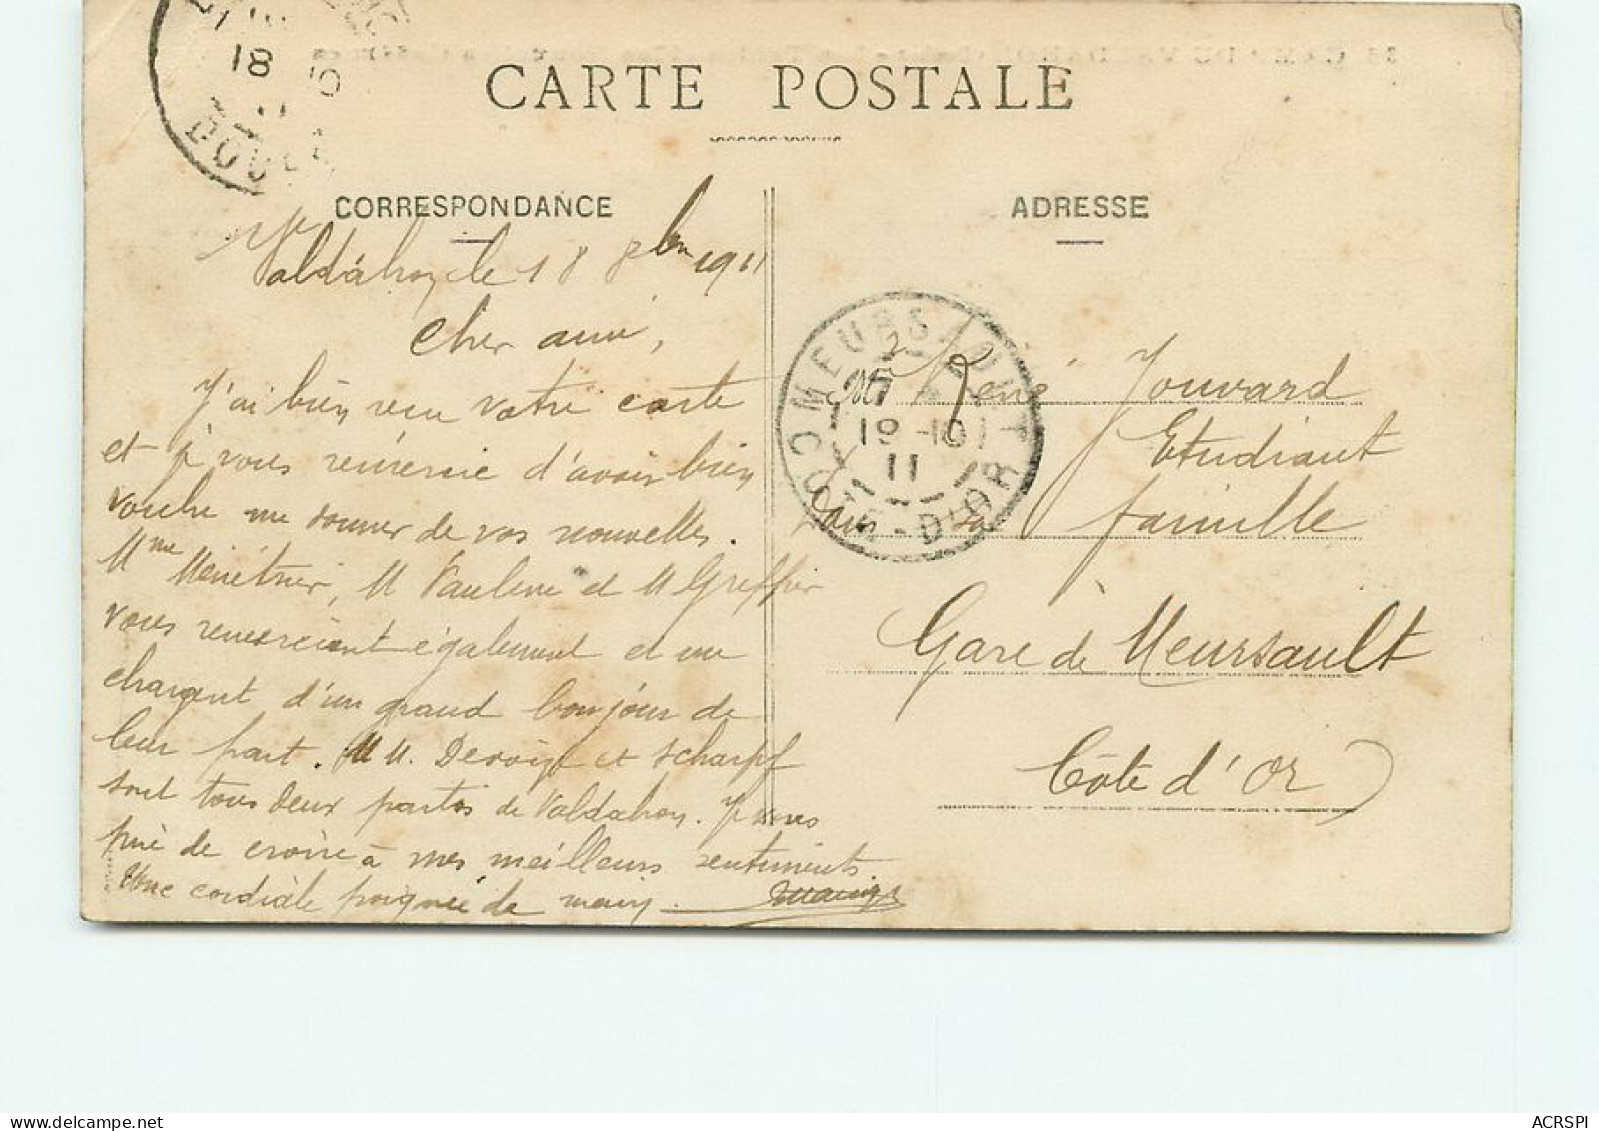 18 10
DOUBS
CARTE POSTALE
CORRESPONDANCE
ADRESSE
Valdahon le 18 8bre 1911
Cher ami,
J'ai bien reçu votre carte
et je vous remercie d'avoir bien
voulu me donner de vos nouvelles.
Mme Menétrier, M Vauline et M Greffier
vous remercient également et me
chargent d'un grand bonjour de
leur part. MM. Devoige et Scharpf
sont tous deux partis de Valdahon. Je vous
prie de croire à mes meilleurs sentiments.
Une cordiale poignée de main.
MEURSAULT
7
19-10
11
COTE-D'OR
Mr René Jouvard
Etudiant
dans sa famille
Gare de Meursault
Côte d'Or
ACRSPI